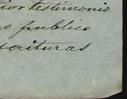 testimonio
publico
scrituras